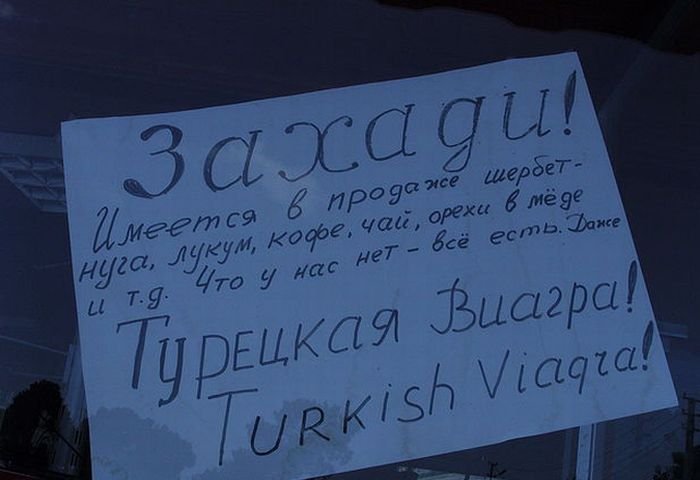 Захади!
Имеется в продаже шербет-
нуга, лукум, кофе, чай, орехи в мёде
и т.д. Что у нас нет - всё есть. Даже
Турецкая Виагра!
Turkish Viagra!